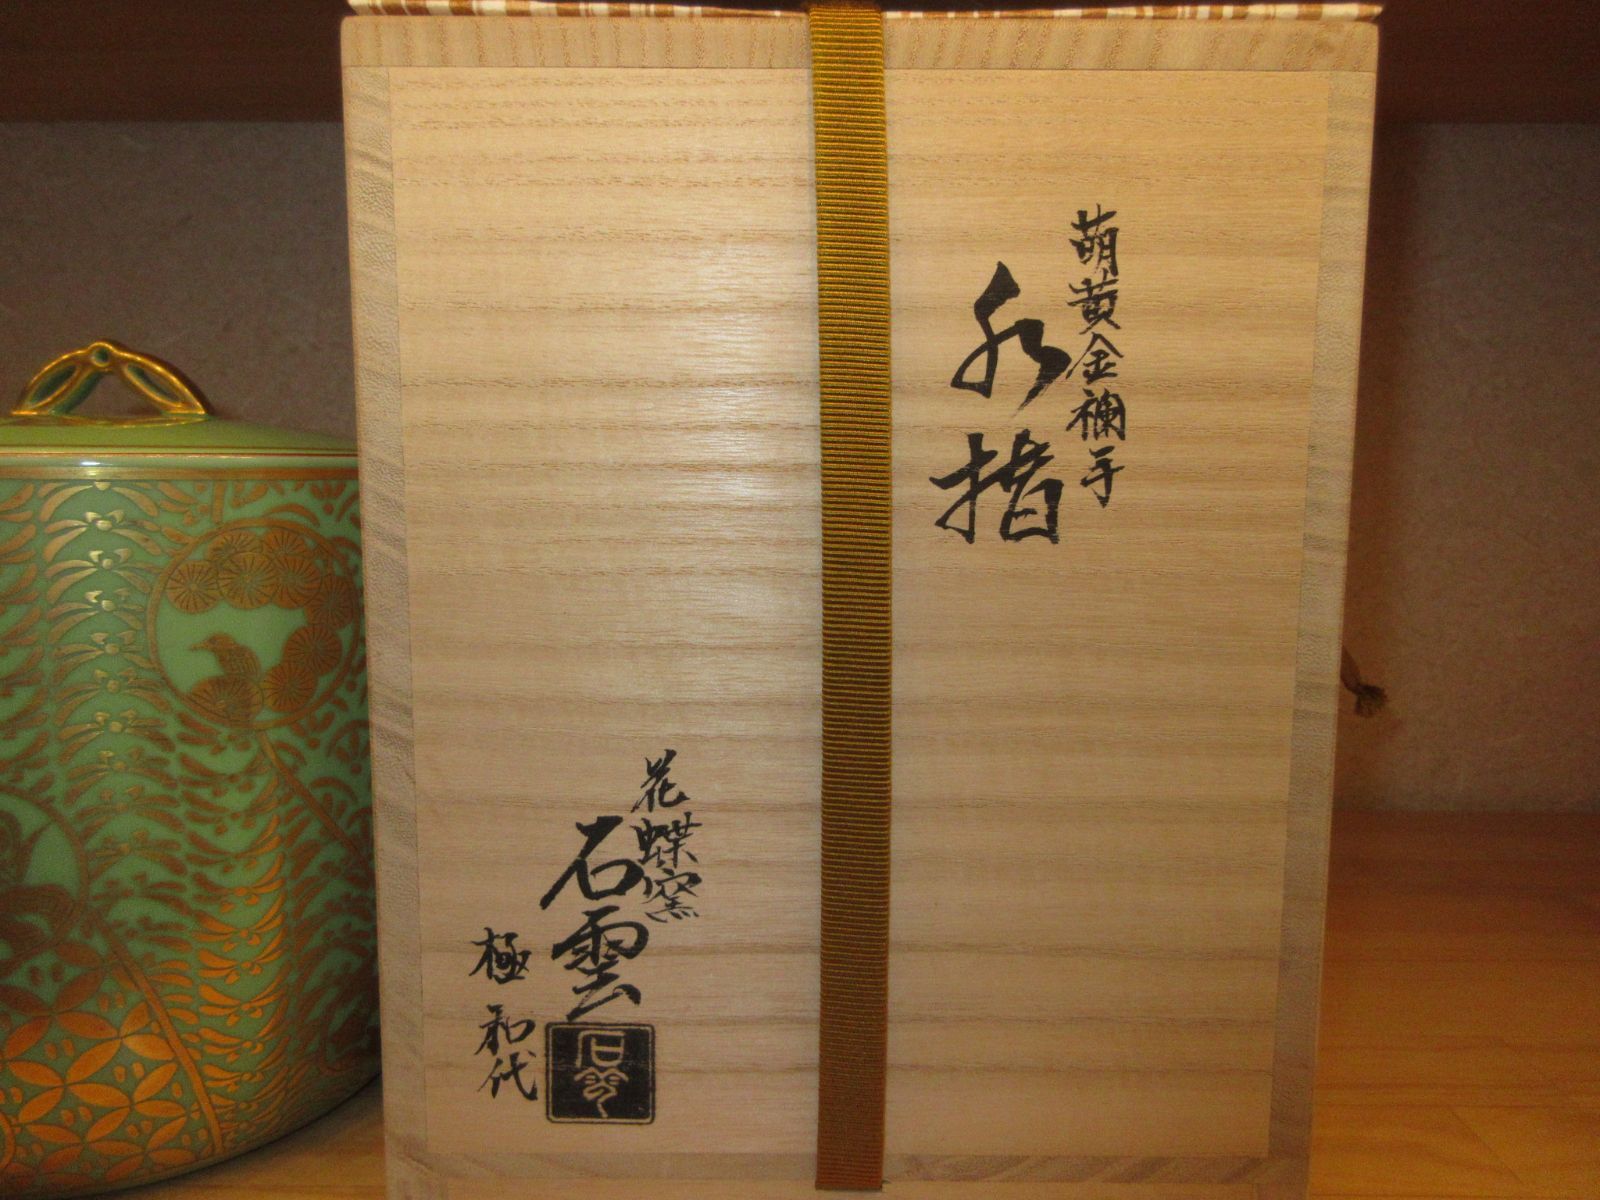 萌黄金襴手
水指
花蝶窯
石雲
極 和代
石雲